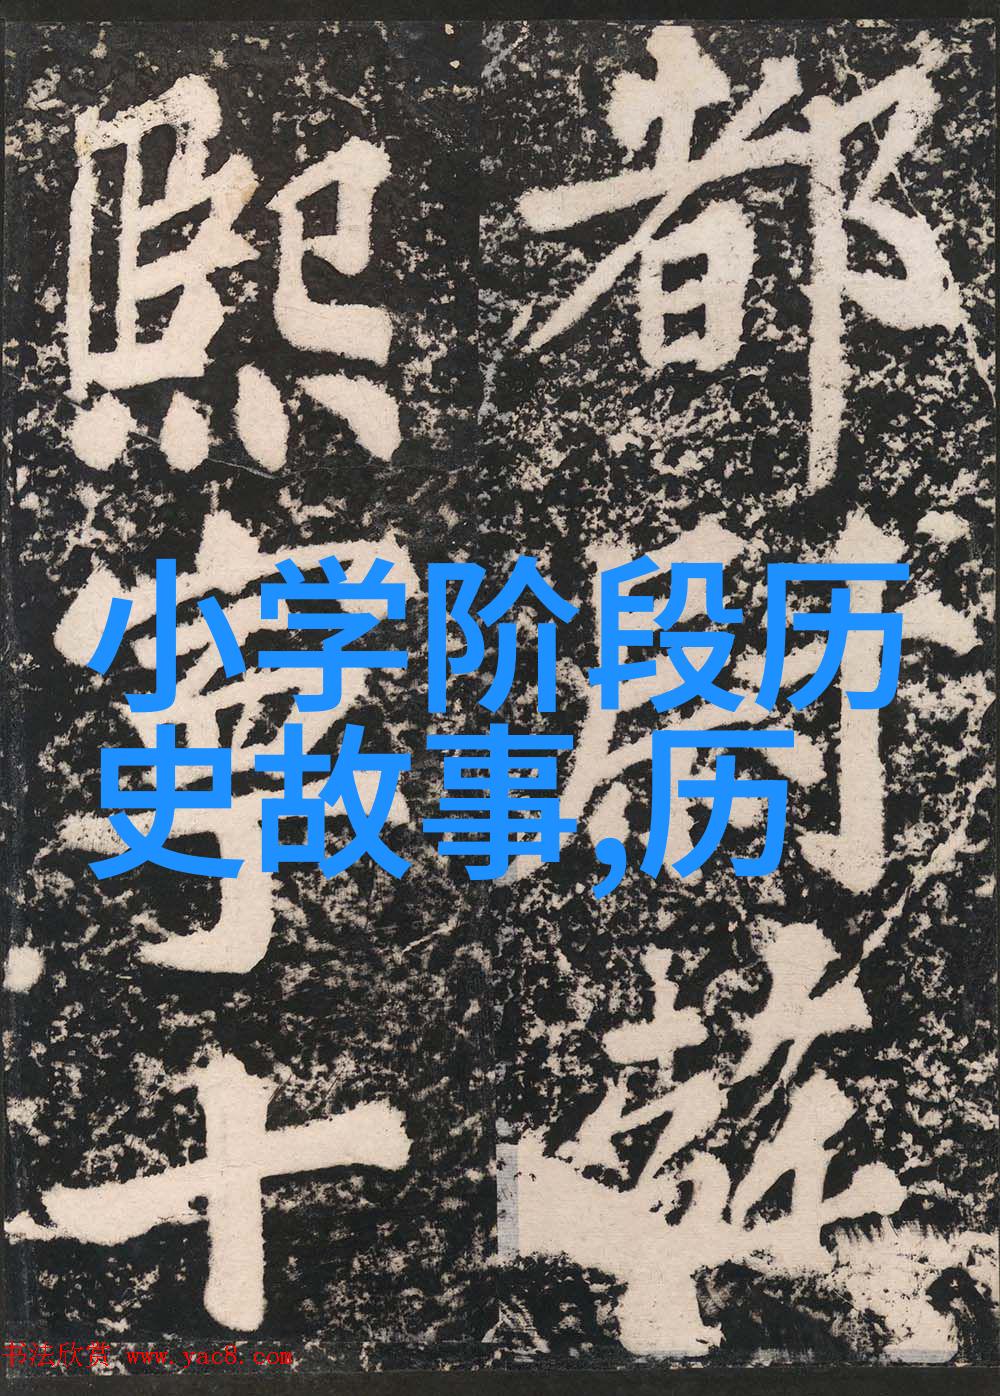 都尉蘇
熙寧十
小学阶段历
史故事,历
书法欣赏 www.yac8.com